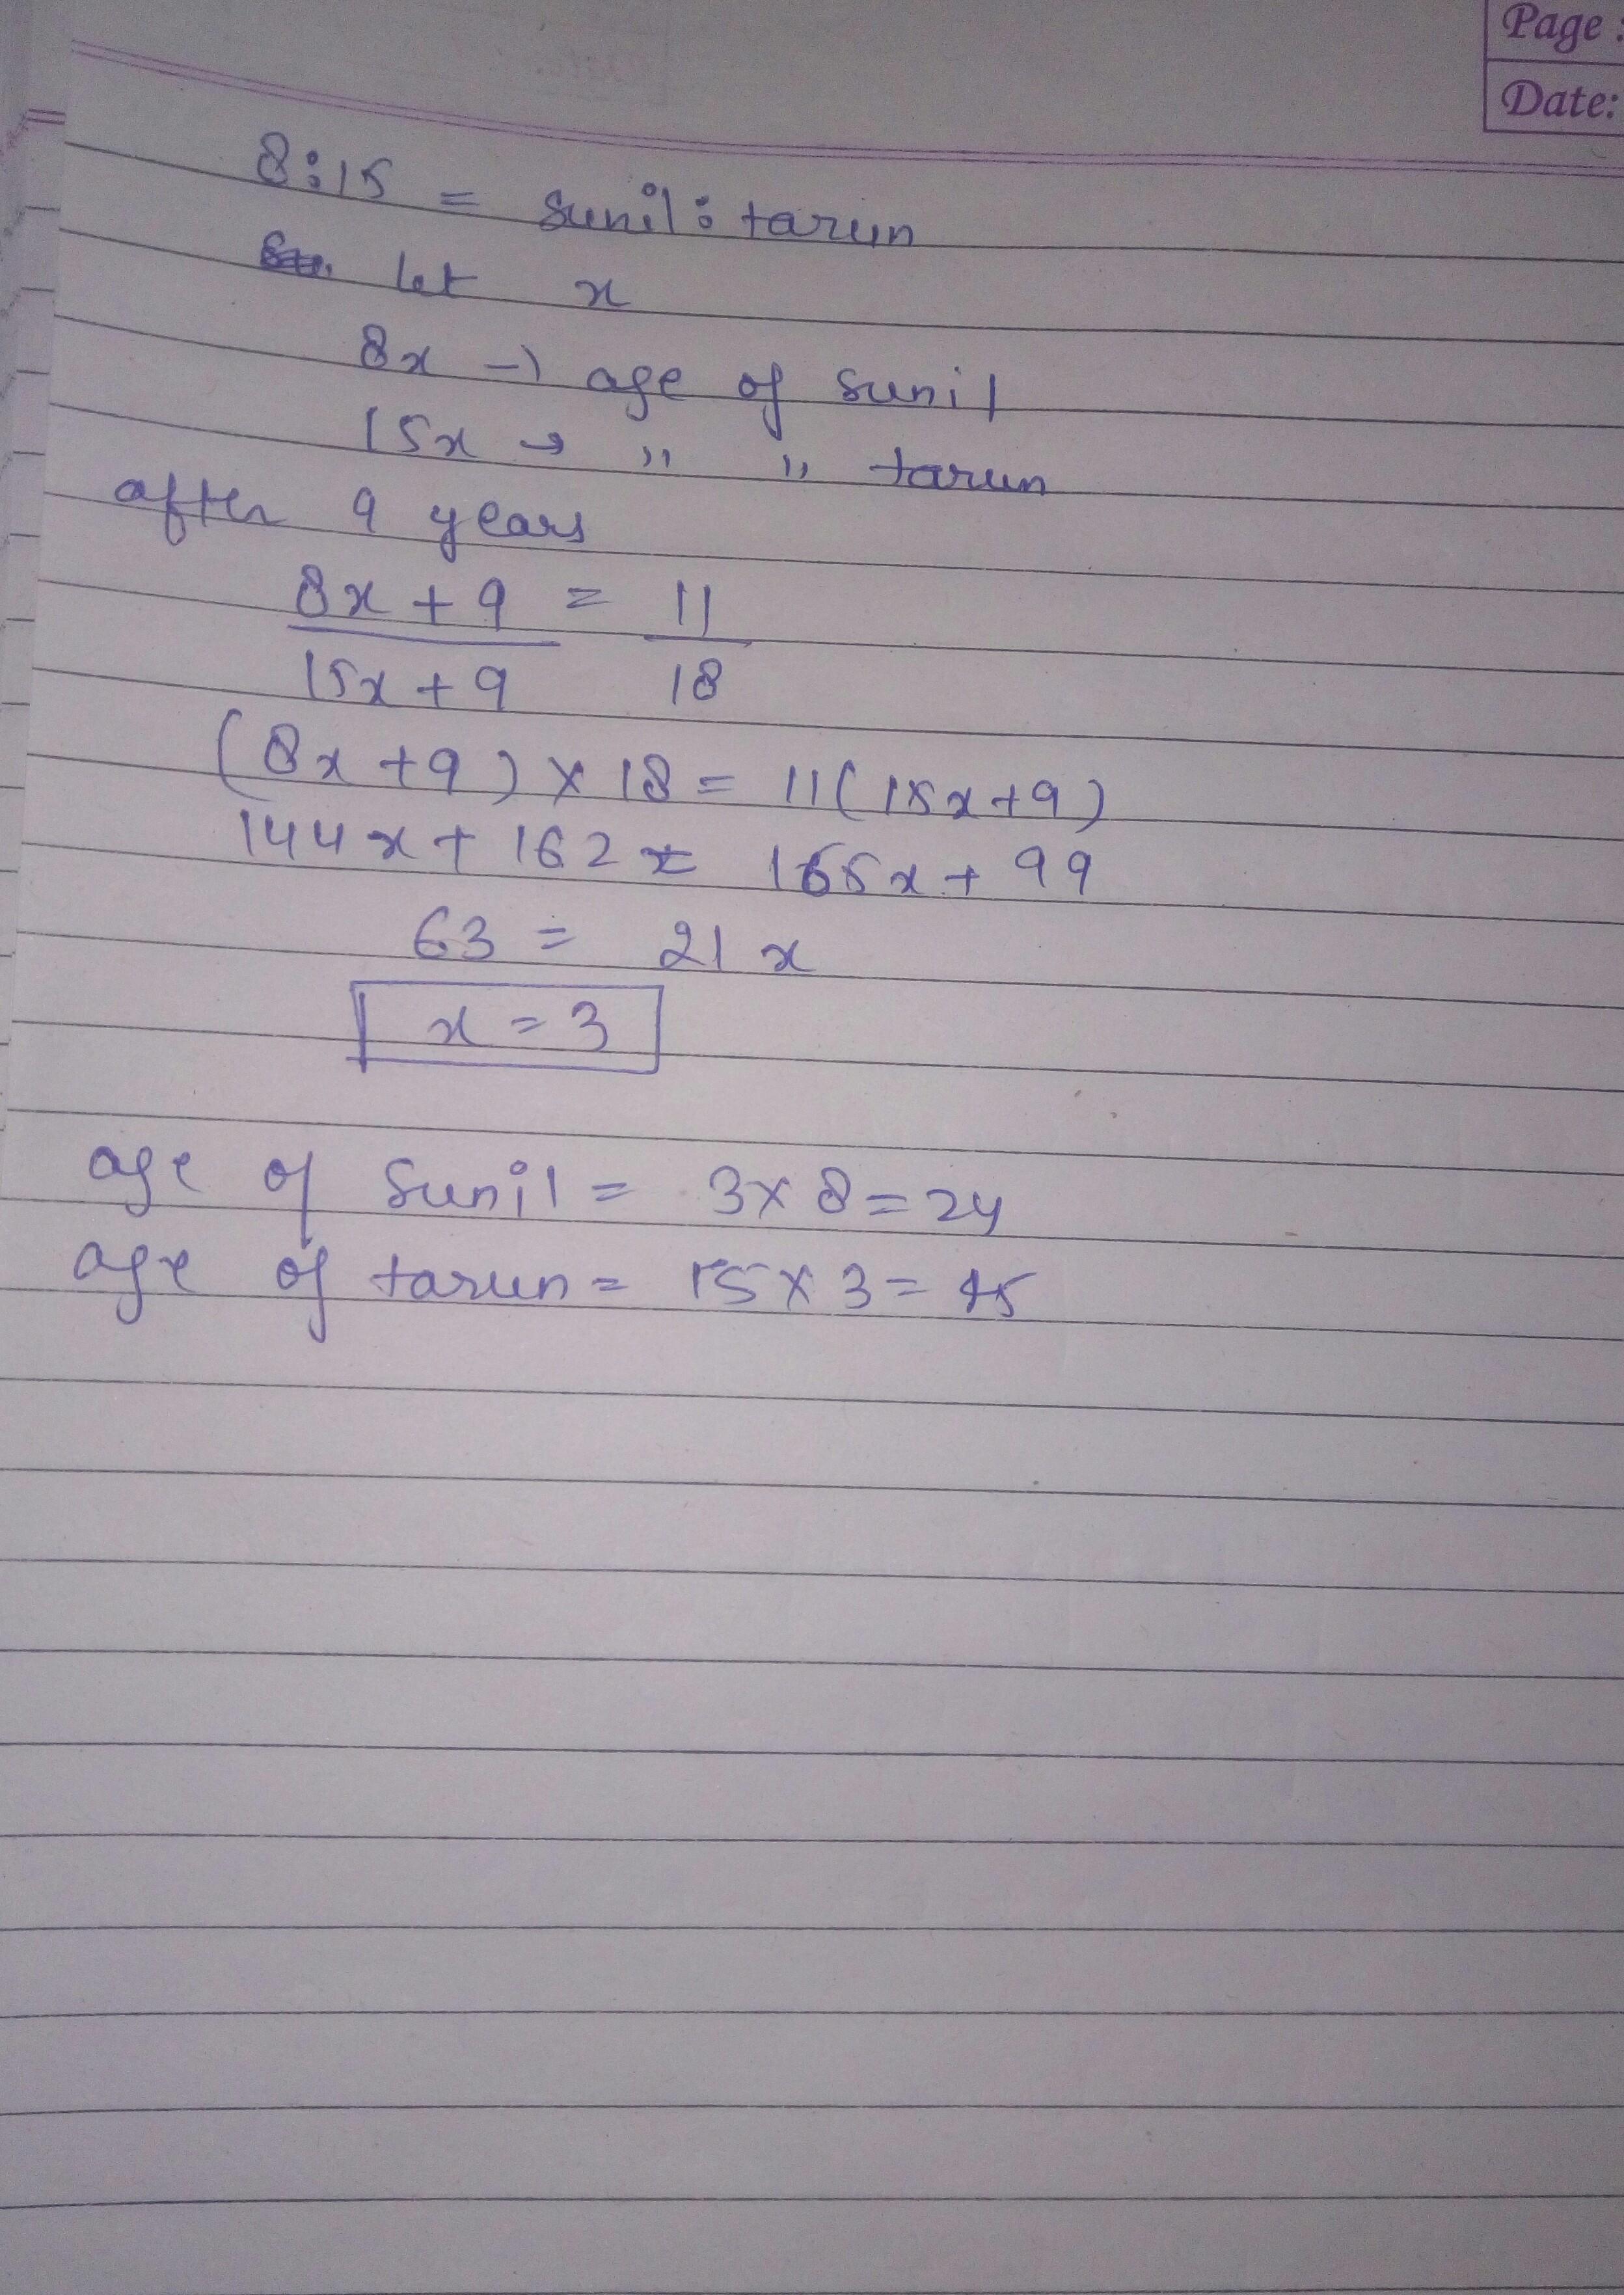 Page :
Date:
8:15 = sunil : tarun
let x
8x → age of sunil
15x → " " tarun
after 9 years
8x + 9 = 11
15x + 9 18
(8x + 9) × 18 = 11(15x + 9)
144x + 162 = 165x + 99
63 = 21x
x = 3
age of Sunil = 3 × 8 = 24
age of tarun = 15 × 3 = 45